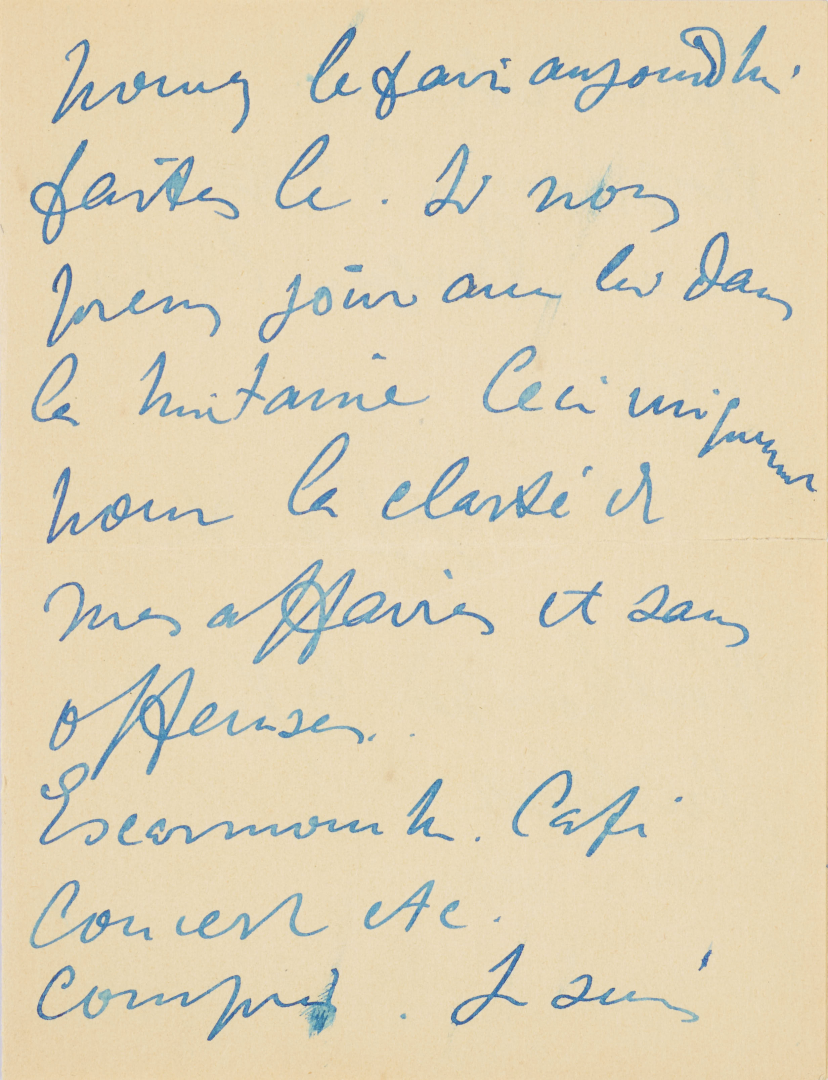 pouvez le faire aujourd'hui
faites le. Si non
prenez jour avec lui dans
la huitaine Ceci uniquement
pour la clarté de
mes affaires et sans
offenses.
Escarmouche. Café
Concert etc.
compris. Je suis